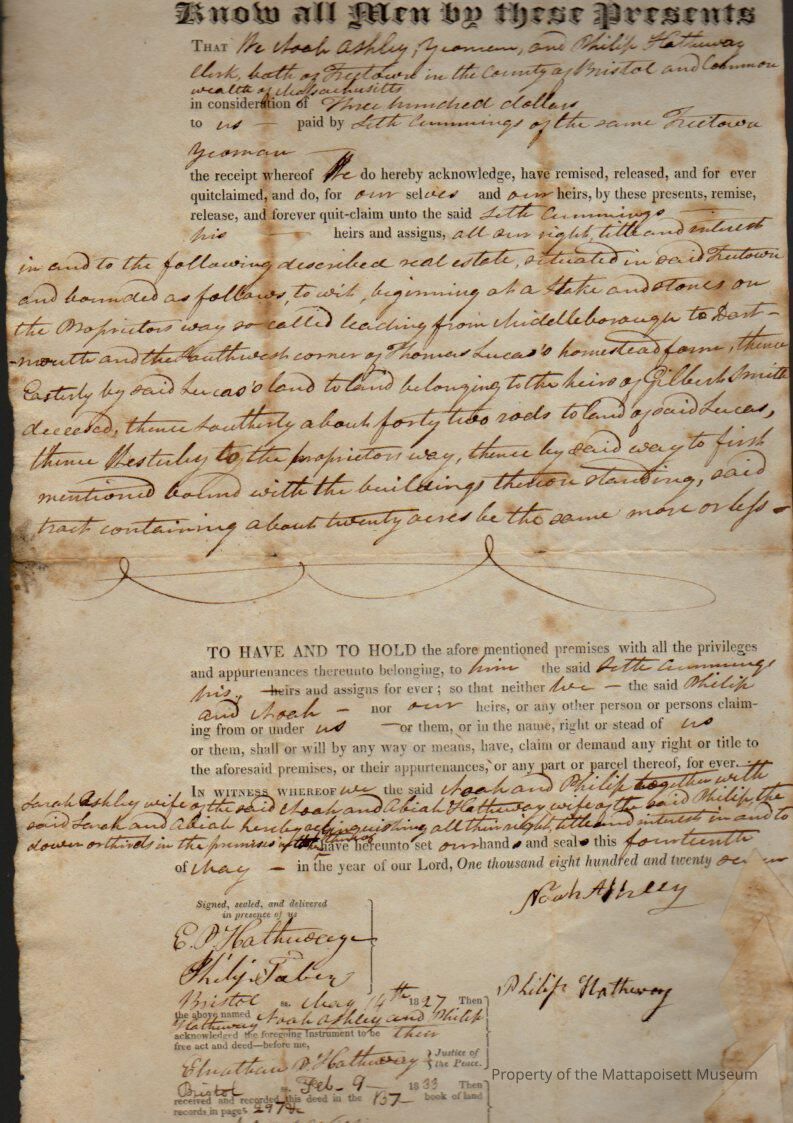 Know all Men by these Presents
THAT We Noah Ashley, Yeoman, and Philip Hathaway
Clerk, both of Freetown in the County of Bristol and Common
wealth of Massachusetts
in consideration of Three hundred dollars
to us — paid by Seth Cummings of the same Freetown
Yeoman —
the receipt whereof We do hereby acknowledge, have remised, released, and for ever
quitclaimed, and do, for our selves and our heirs, by these presents, remise,
release, and forever quit-claim unto the said Seth Cummings
his — heirs and assigns, all our right, title and interest
in and to the following described real estate, situated in said Freetown
and bounded as follows, to wit, beginning at a Stake and stones on
the Proprietors way so called leading from Middleborough to Dart-
-mouth and the Southwest corner of Thomas Lucas's homestead farm, thence
Easterly by said Lucas's land to land belonging to the heirs of Gilbert Smith
dececed, thence Southerly about forty two rods to land of said Lucas,
thence Westerly to the proprietors way, thence by said way to first
mentioned bound with the buildings thereon standing, said
tract containing about twenty acres be the same more or less -
TO HAVE AND TO HOLD the afore mentioned premises with all the privileges
and appurtenances thereunto belonging, to him the said Seth Cummings
his, heirs and assigns for ever; so that neither We — the said Philip
and Noah — nor our heirs, or any other person or persons claim-
ing from or under us — or them, or in the name, right or stead of us
or them, shall or will by any way or means, have, claim or demand any right or title to
the aforesaid premises, or their appurtenances, or any part or parcel thereof, for ever.
IN WITNESS WHEREOF we the said Noah and Philip together with
Sarah Ashley wife of the said Noah and Abiah Hathaway wife of the said Philip, the
said Sarah and Abiah hereby relinquishing all their right, title and interest in and to
dower or thirds in the premises have hereunto set our hands and seals this fourteenth
of May — in the year of our Lord, One thousand eight hundred and twenty seven
Noah Ashley
Signed, sealed, and delivered
in presence of us
E. P. Hathaway
Philip Taber
Philip Hathaway
Bristol ss. May 14th 1827 Then
the above named Noah Ashley and Philip
Hathaway
acknowledged the foregoing Instrument to be their
free act and deed—before me,
Elnathan P. Hathaway } Justice of
the Peace.
Bristol ss. Feb. 9 — 1833 Then
received and recorded this deed in the 137 book of land
records in pages 297
Property of the Mattapoisett Museum